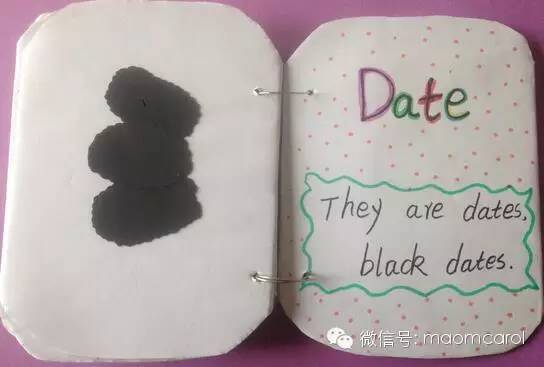 Date
They are dates,
black dates.
微信号: maomcarol